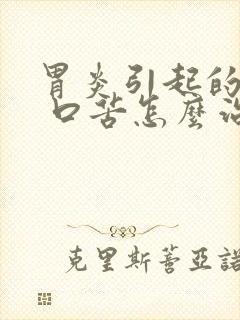 胃炎引起的
口苦怎麼治
克里斯蒂亞諾